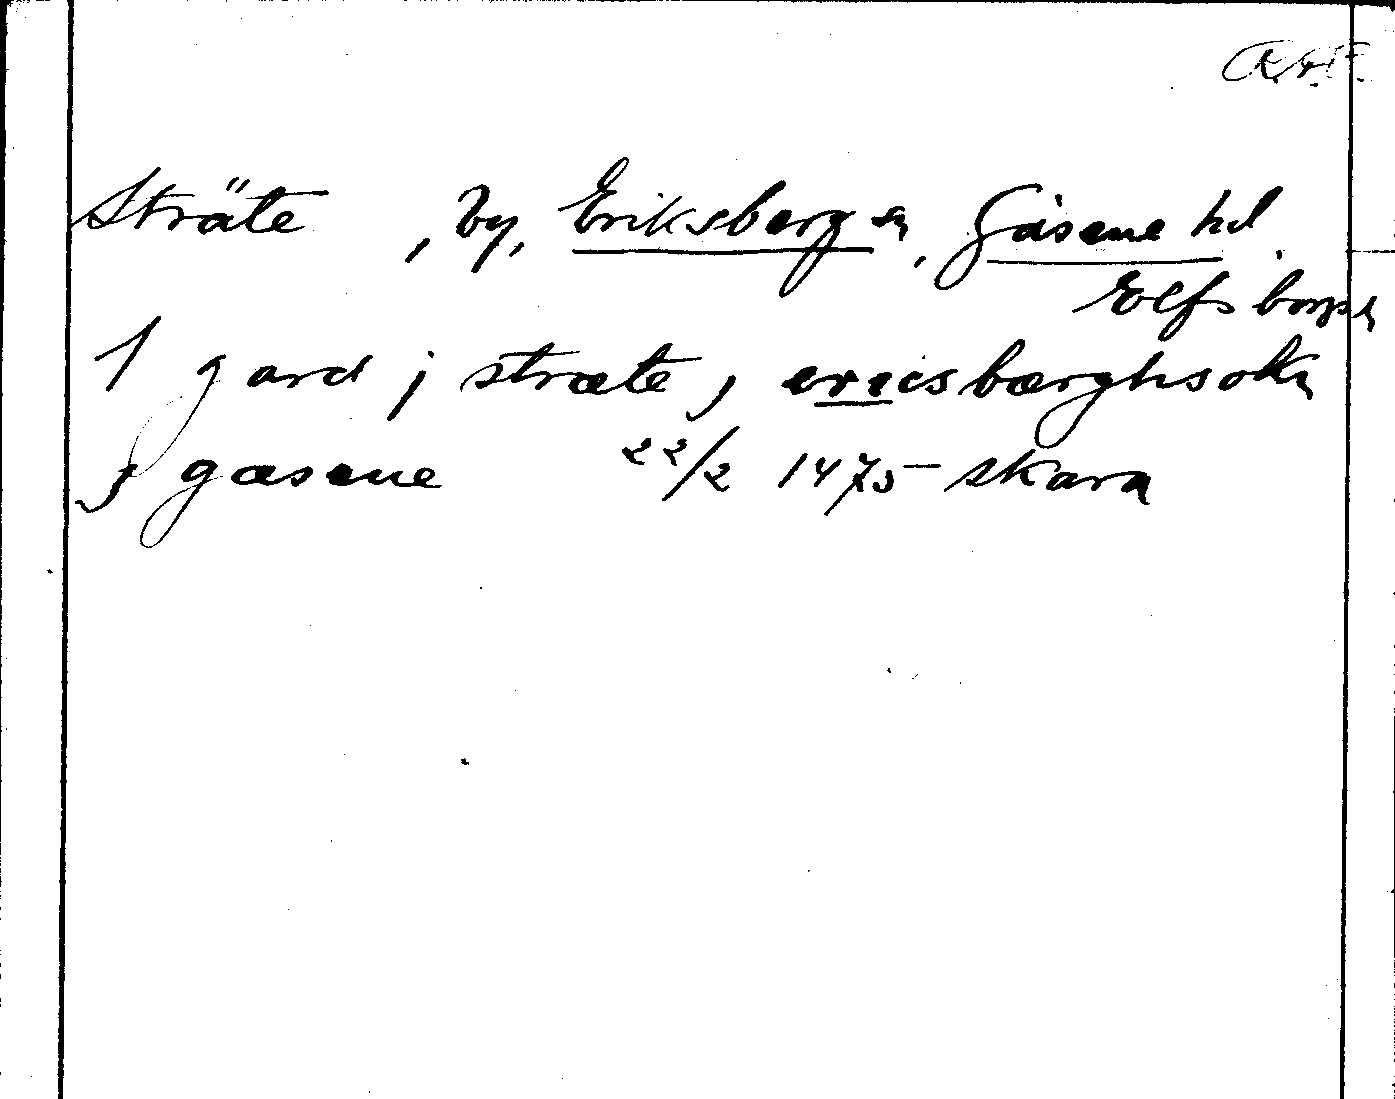 Sträte , by, Eriksberg sn, Gäsene hd.
Elfsborgs l
1 gard j stræte j ericsbærghsokn
j gæsene 22/2 1475 skara